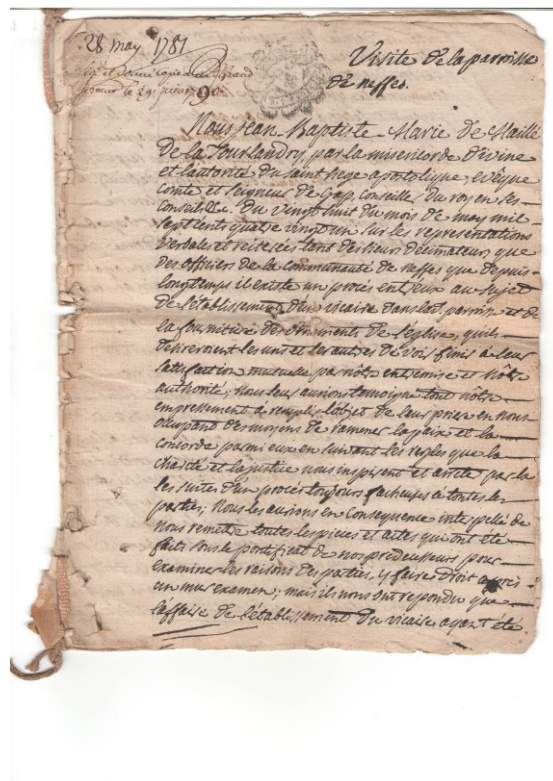 28 may 1781
Visite de la parroisse
de neffes.
Nous jean Baptiste Marie de Maillé
de la Tourlandry, par la misericorde divine
et l'autorité du saint siege apostolique, evêque
comte et seigneur de Gap, conseiller du roy en ses
conseils &c. du vingt huit du mois de may mil
sept cents quatre vingt un sur les representations
verbales et reiterées tant des sieurs decimateurs que
des officiers de la communauté de neffes que depuis
longtemps il existe un procès entr'eux au sujet
de l'établissement d'un vicaire dans lad. parroisse et de
la fourniture des ornements de l'église, qu'ils
desireroient les uns et les autres de voir finis à leur
satisfaction mutuelle par nôtre entremise et nôtre
authorité; Nous leur aurions temoigné tout nôtre
empressement a remplir l'objet de leur priere en nous
occupant des moyens de ramener la paix et la
concorde parmi eux en suivant les regles que la
charité et la justice nous inspirent et par la
les suites d'un procès toujours facheuses a toutes les
parties; Nous les aurions en consequence interpellé de
nous remettre toutes les pieces et actes qui ont été
faits sous le pontificat de nos predecesseurs pour
examiner les raisons des parties, y faire droit après
un mur examen; mais ils nous ont repondu que
l'affaire de l'établissement du vicaire ayant été